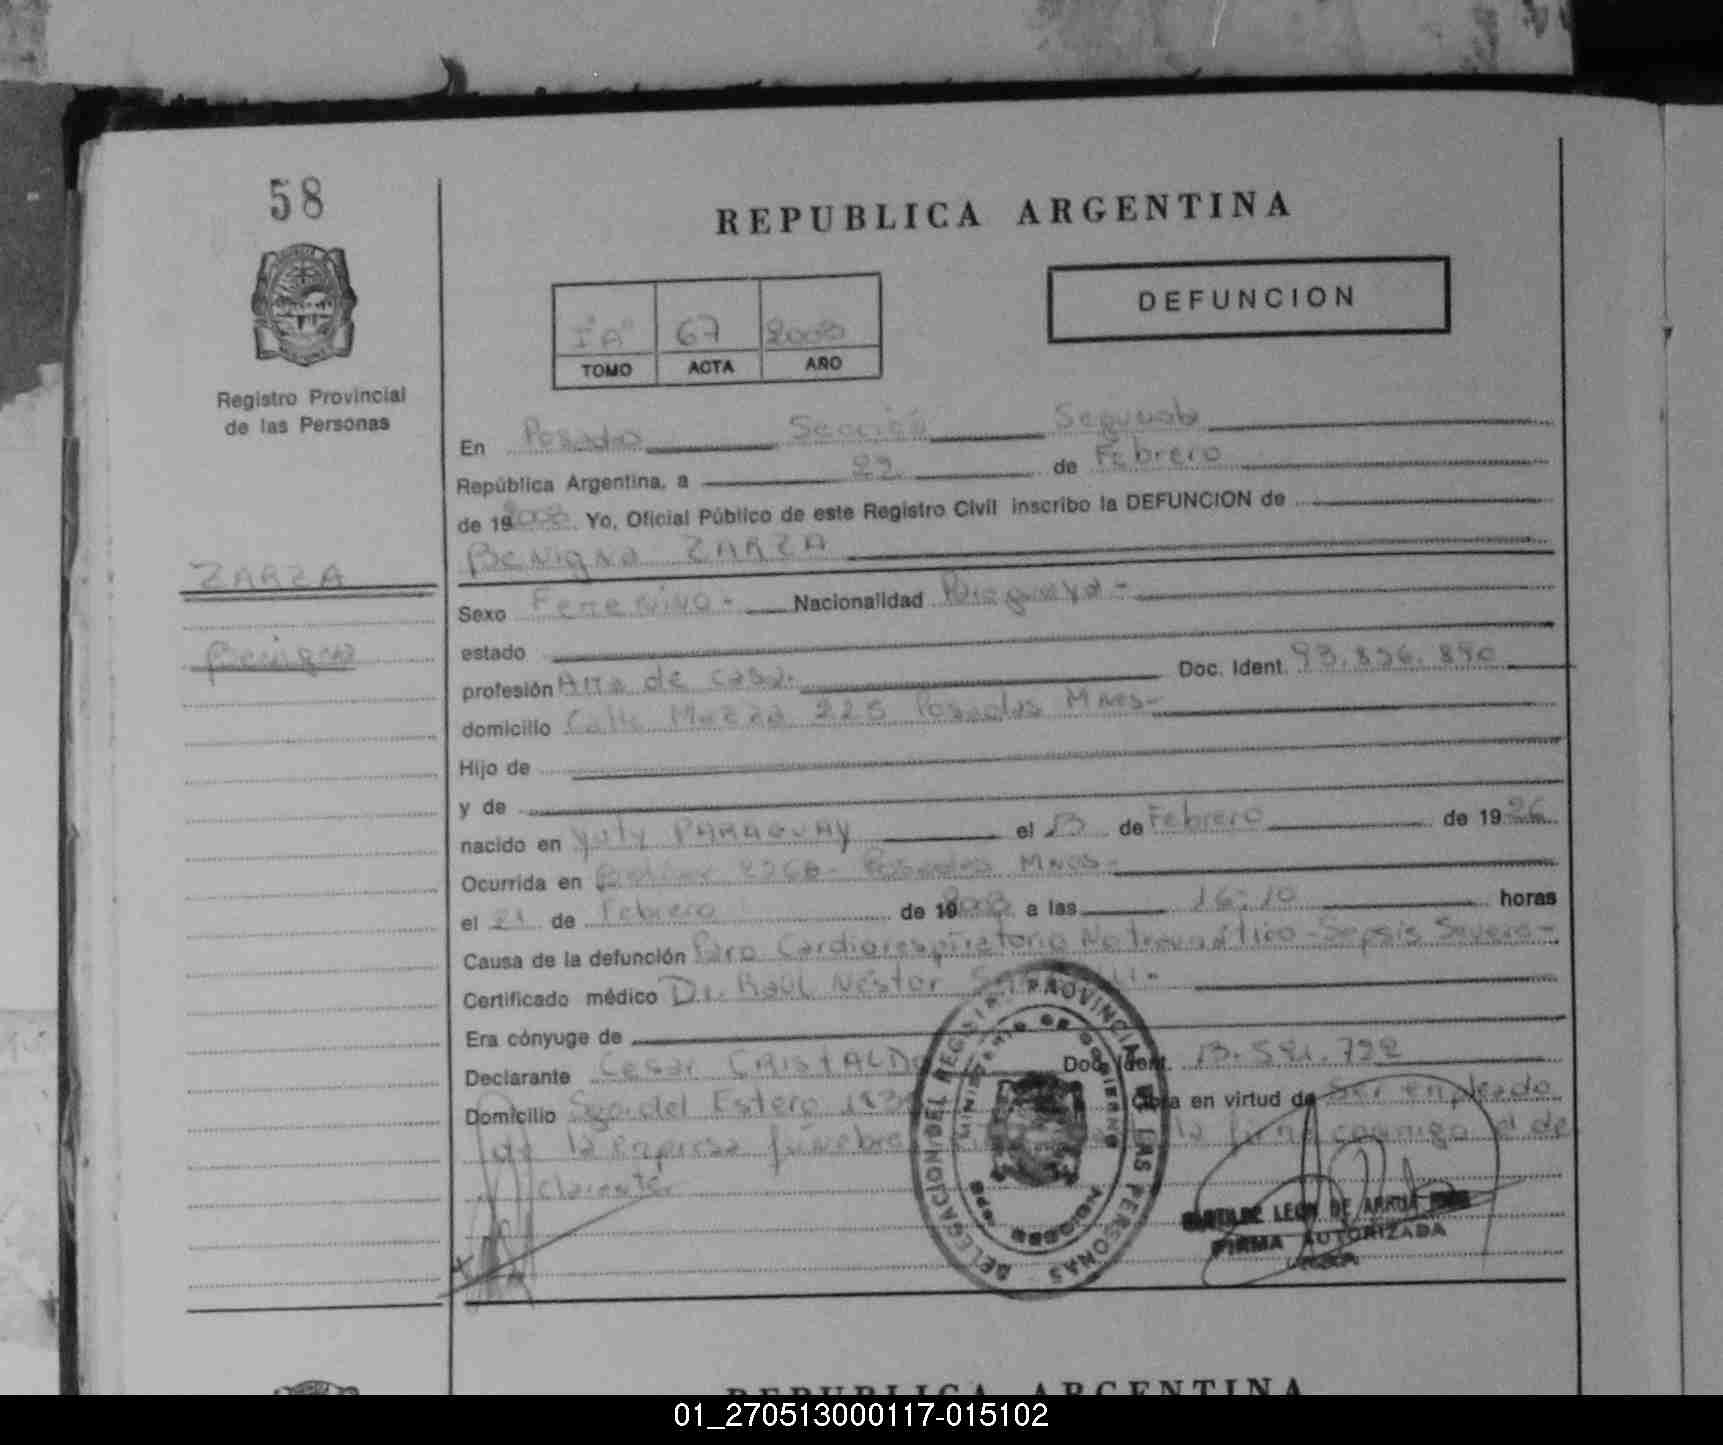 58
REPUBLICA ARGENTINA
DEFUNCION
Iº "A" 67 2008
TOMO ACTA AÑO
Registro Provincial
de las Personas
En Posadas Sección Segunda
República Argentina, a 22 de Febrero
de 192008 Yo, Oficial Público de este Registro Civil inscribo la DEFUNCION de
Benigna ZARZA
ZARZA
Benigna
Sexo Femenino - Nacionalidad Paraguaya -
estado
profesión Ama de casa. Doc. Ident. 93.826.890
domicilio Calle 225 Posadas Mnes-
Hijo de
y de
nacido en Yuty PARAGUAY el 13 de Febrero de 1926
Ocurrida en Bolívar Posadas Mnes-
el 21 de Febrero de 192008 a las 16:10 horas
Causa de la defunción Paro Cardiorespiratorio No traumático - Sepsis Severa -
Certificado médico Dr. Raúl Néstor
Era cónyuge de
Declarante Cesar CRISTALDO Doc. Ident. 13.591.722
Domicilio Sgo. del Estero Obra en virtud de Ser empleado
de la empresa fúnebre la firma conmigo el de
clarante.
DELEGACION DEL REGISTRO PROVINCIAL DE LAS PERSONAS
MINISTERIO DE GOBIERNO
MISIONES
LEON DE ARRUA
FIRMA AUTORIZADA
REPUBLICA ARGENTINA
01_270513000117-015102